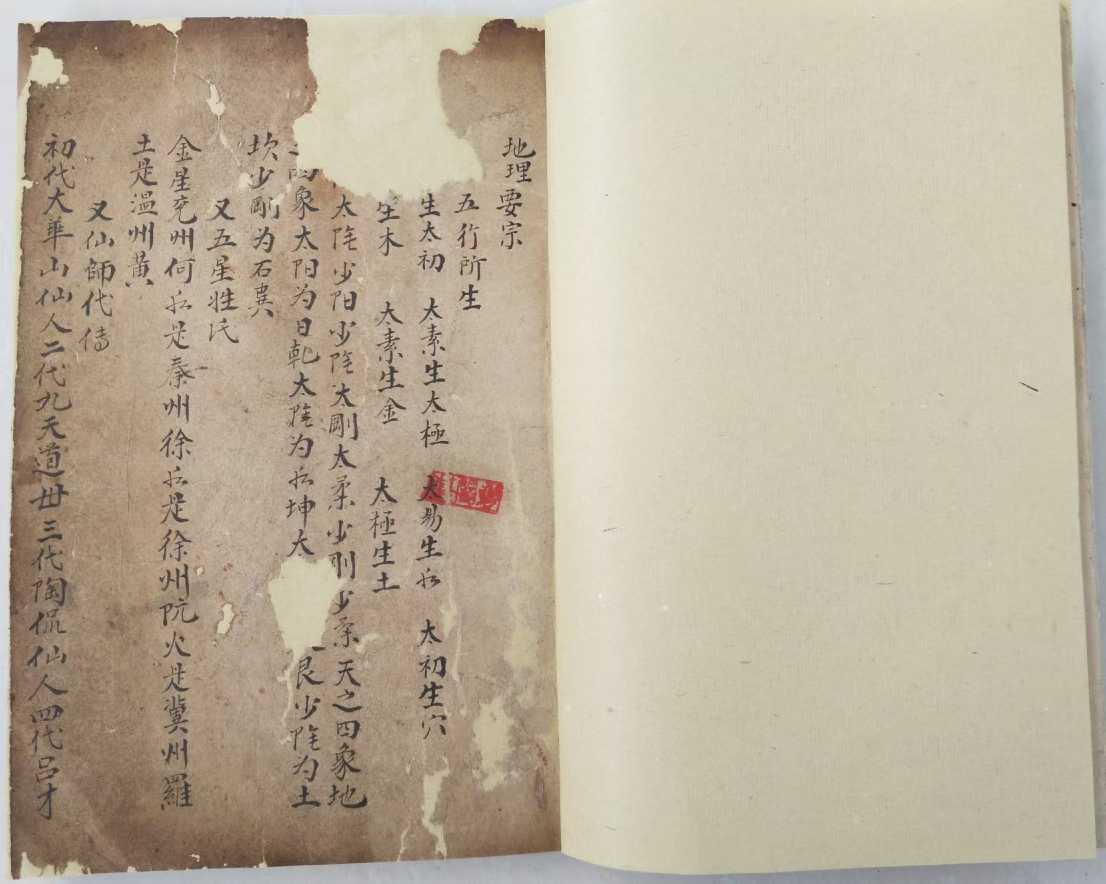 地理要宗
五行所生
生太初 太素生太極 太易生水 太初生穴
生木 太素生金 太極生土
太陰少阳少陰太剛太柔少刚少柔天之四象地
四象太阳为日乹太陰为水坤太 艮少陰为土
坎少剛为石巽
又五星姓氏
金星兖州何水是秦州徐水是徐州阮火是冀州羅
土是温州黄
又仙師代传
初代大華山仙人二代九天道卅三代陶侃仙人四代吕才